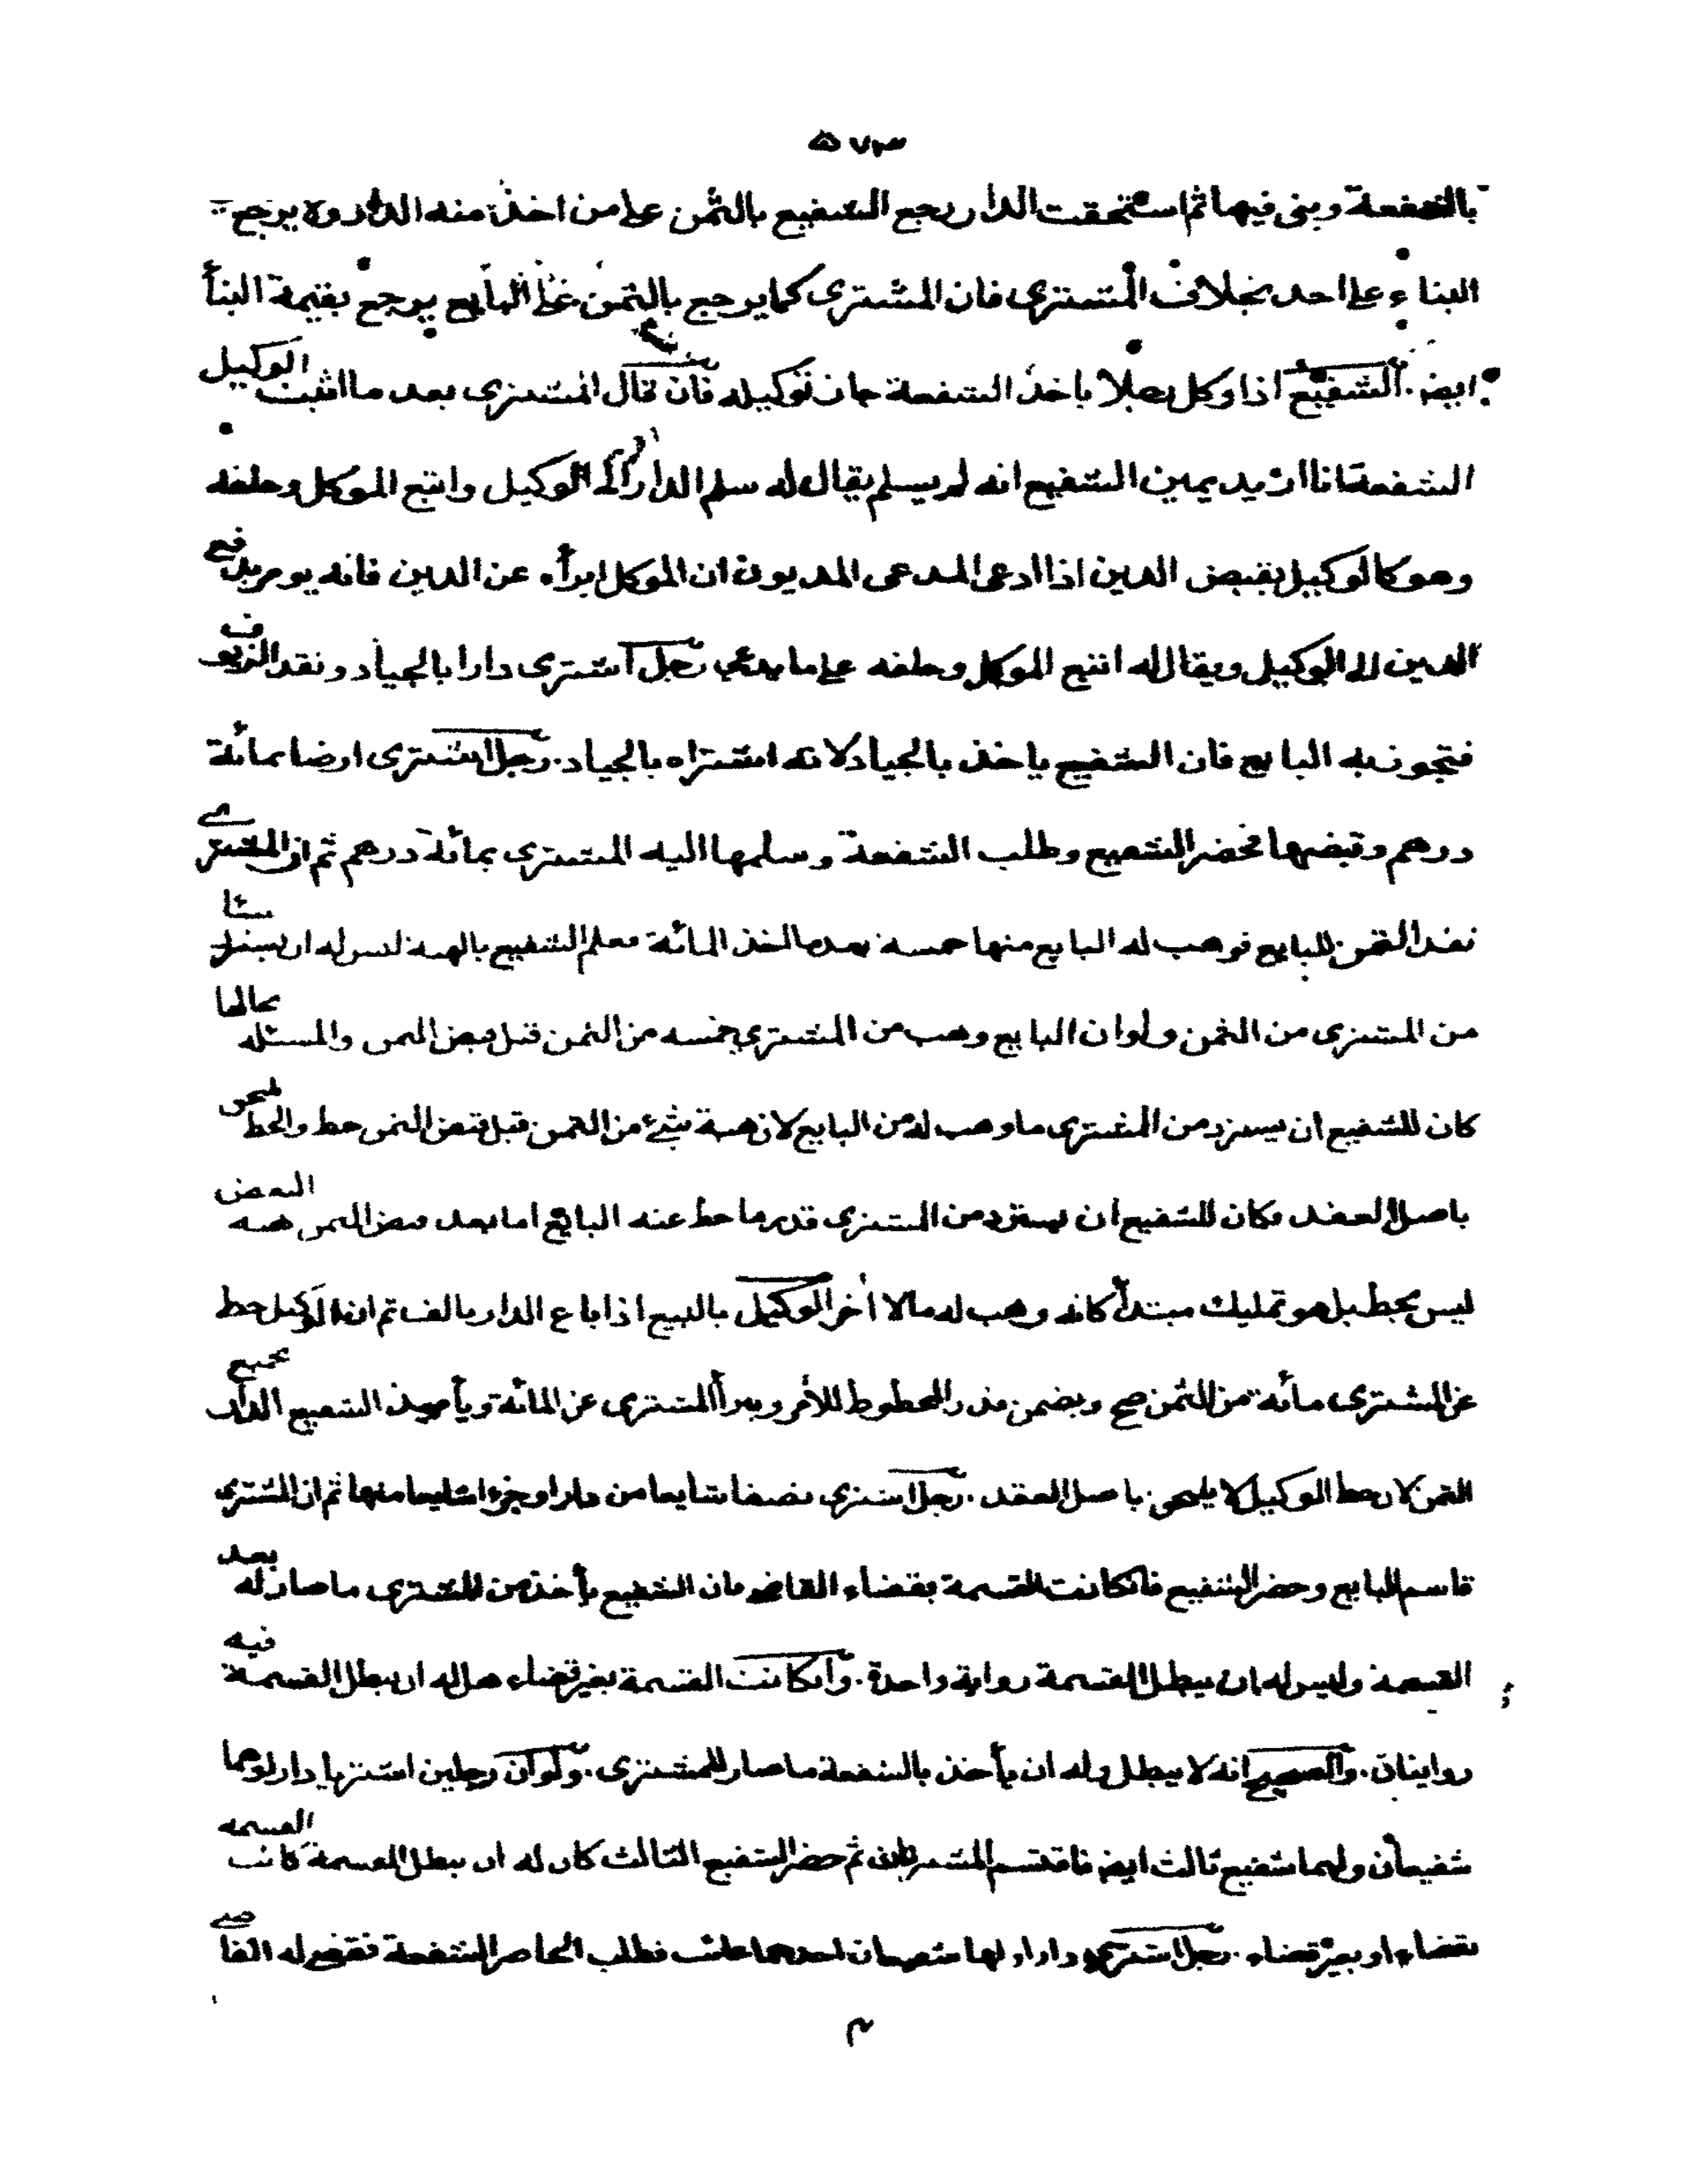 ٥٧٣
بالشفعة وبنى فيها ثم استحقت الدار رجع الشفيع بالثمن على من اخذ منه الدار ولا يرجع
البناء على احد بخلاف المشترى فان المشترى كما يرجع بالثمن على البايع يرجع بقيمة البنأ
ايضا . الشفيع اذا وكل رجلا باخذ الشفعة جاز توكيله فان قال المشترى بعد ما اثبت الوكيل
الشفعة انا اريد يمين الشفيع انه لم يسلم يقال له سلم الدار الى الوكيل واتبع الموكل وحلفه
وهو كالوكيل بقبض الدين اذا ادعى المدعى المديون ان الموكل ابرأه عن الدين فانه يومر بدفع
الدين الى الوكيل ويقال له اتبع الموكل وحلفه على ما يدعى رجل اشترى دارا بالجياد ونقد الزيوف
فتجوز به البايع فان الشفيع ياخذ بالجياد لانه اشتراه بالجياد . رجل اشترى ارضا بمائة
درهم وقبضها فحضر الشفيع وطلب الشفعة وسلمها اليه المشترى بمائة درهم ثم ان المشترى
نقد الثمن للبايع فوهب له البايع منها خمسة بعد ما اخذ المائة فعلم الشفيع بالهبة ليس له ان يسترد شيئا
من المشترى من الثمن ولو ان البايع وهب من المشترى خمسة من الثمن قبل قبض الثمن والمسئلة بحالها
كان للشفيع ان يسترد من المشترى ما وهب له من البايع لان هبة شئ من الثمن قبل قبض الثمن حط والحط يلتحق
باصل العقد فكان للشفيع ان يسترد من المشترى قدر ما حط عنه البايع اما بعد قبض الثمن هبة البعض
ليس بحط بل هو تمليك مبتدأ كانه وهب له مالا اخر الوكيل بالبيع اذا باع الدار بالف ثم ان الوكيل حط
عن المشترى مائة من الثمن صح ويضمن قدر المحطوط للآمر ويبرأ المشترى عن المائة ويأخذ الشفيع الدار بجميع
الثمن لان حط الوكيل لا يلتحق باصل العقد . رجل اشترى نصفا شايعا من دار او جزءا شايعا منها ثم ان المشترى
قاسم البايع وحضر الشفيع فان كانت القسمة بقضاء القاضى فان الشفيع يأخذ من المشترى ما صار له بعد
القسمة وليس له ان يبطل القسمة رواية واحدة . وان كانت القسمة بغير قضاء هل له ان يبطل القسمة فيه
روايتان . والصحيح انه لا يبطل وله ان يأخذ بالشفعة ما صار للمشترى . ولو ان رجلين اشتريا دارا وهما
شفيعان ولهما شفيع ثالث ايضا فاقتسم المشتريان ثم حضر الشفيع الثالث كان له ان يبطل القسمة كانت القسمة
بقضاء او بغير قضاء . رجل اشترى دارا ولها شفيعان احدهما غائب فطلب الحاضر الشفعة فقضى له القاضى
م